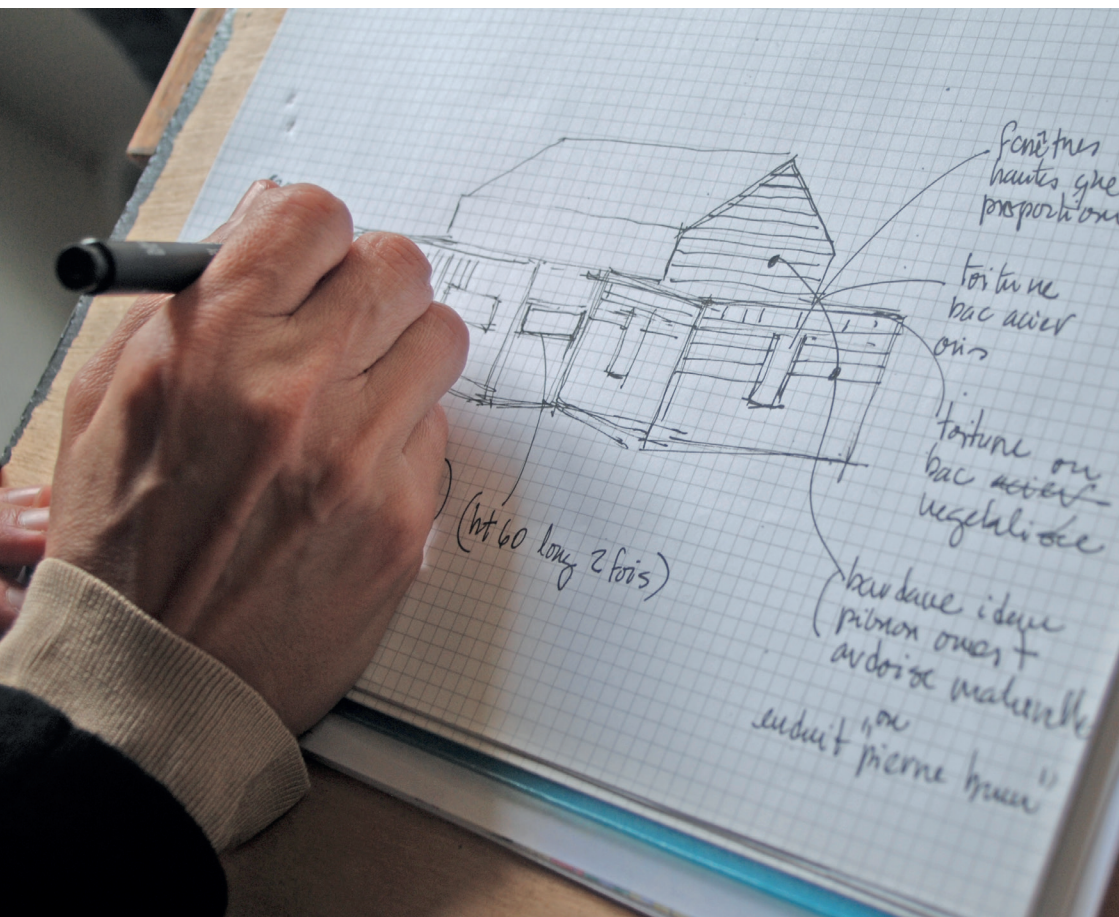 fenêtres
hautes que
proportions
toiture
bac acier
toiture ou
bac acier
vegetalisée
(ht 60 long 2 fois)
bardage idem
pignon ouest
ardoise naturelle
ou
enduit "pierre